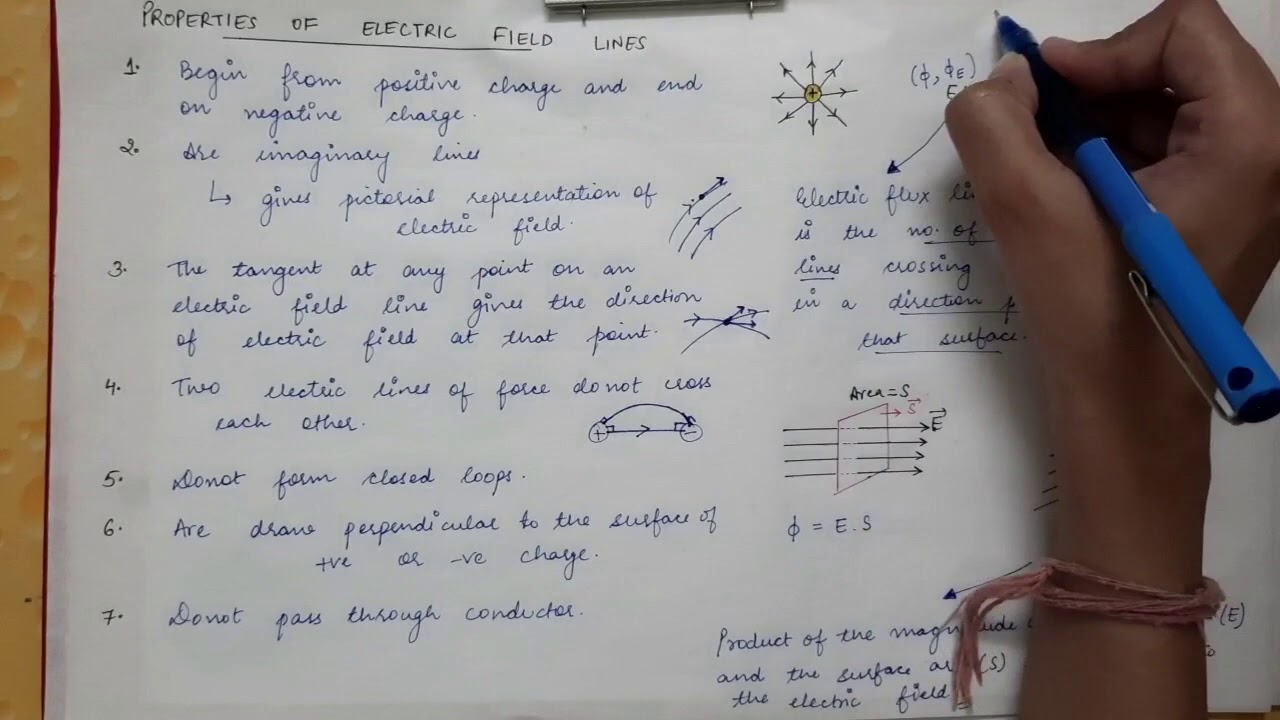 PROPERTIES OF ELECTRIC FIELD LINES
1. Begin from positive charge and end
on negative charge.
2. Are imaginary lines
↳ gives pictorial representation of
electric field.
3. The tangent at any point on an
electric field line gives the direction
of electric field at that point.
4. Two electric lines of force donot cross
each other.
+ −
5. Donot form closed loops.
6. Are drawn perpendicular to the surface of
+ve or -ve charge.
7. Donot pass through conductor.
+
(ϕ, ϕE)
Electric flux
is the no. of
lines crossing
in a direction
that surface.
Area = S
S
E
ϕ = E.S
(E)
Product of the magnitude
and the surface (S)
the electric field